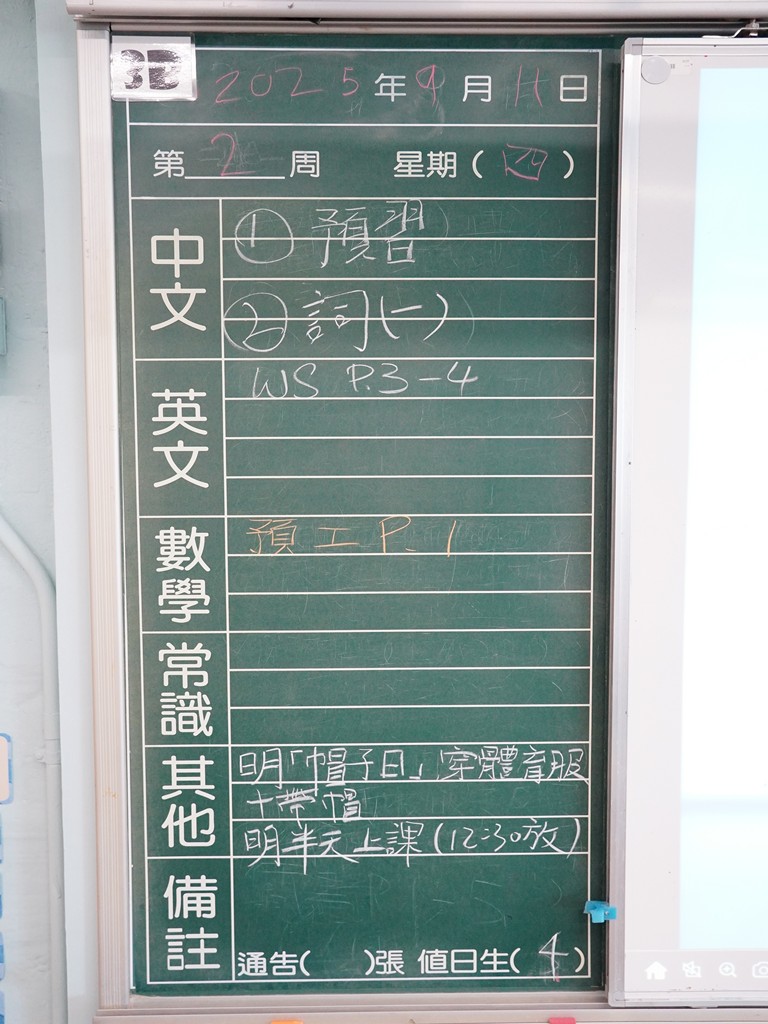 3D
2025年9月11日
第2周 星期(四)
中文
① 預習
② 詞(一)
英文
WS P.3-4
數學
預工P.1
常識
其他
明「帽子日」穿體育服
+帶帽
明半天上課(12:30放)
備註
通告( )張 值日生(4)